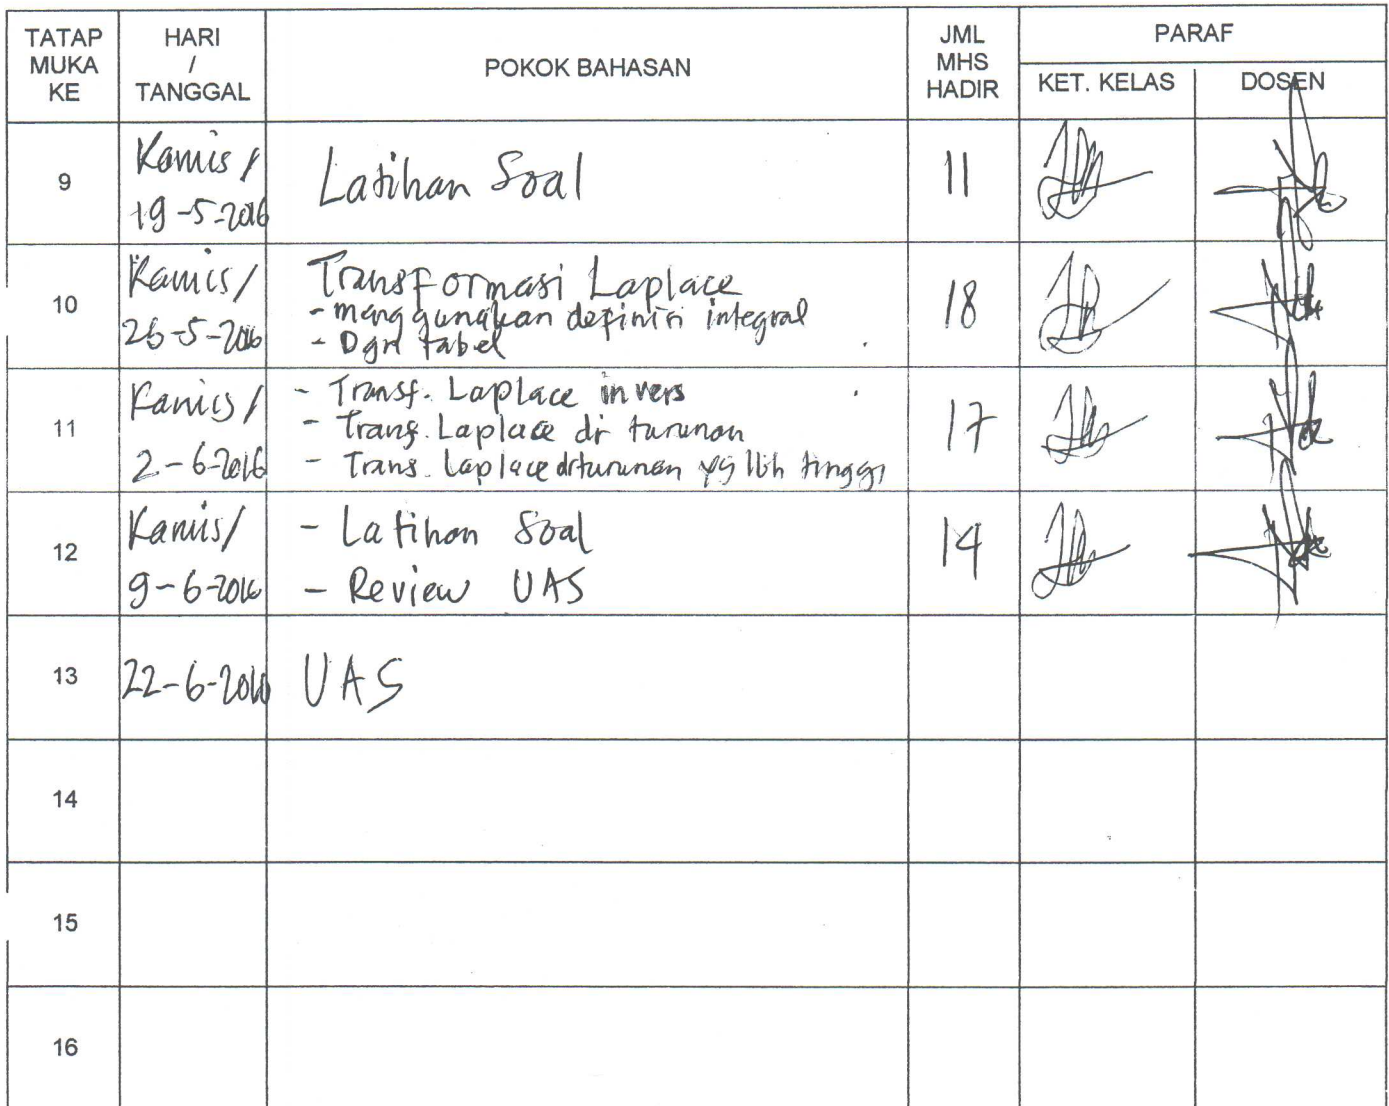 TATAP MUKA KE
HARI / TANGGAL
POKOK BAHASAN
JML MHS HADIR
PARAF
KET. KELAS
DOSEN
9
Kamis /
19-5-2016
Latihan Soal
11
10
Kamis /
26-5-2016
Transformasi Laplace
- menggunakan definisi integral
- Dgn tabel
18
11
Kamis /
2-6-2016
- Transf. Laplace invers
- Transf. Laplace dr turunan
- Trans. Laplace dr turunan yg lbh tinggi
17
12
Kamis/
9-6-2016
- Latihan Soal
- Review UAS
14
13
22-6-2016
UAS
14
15
16